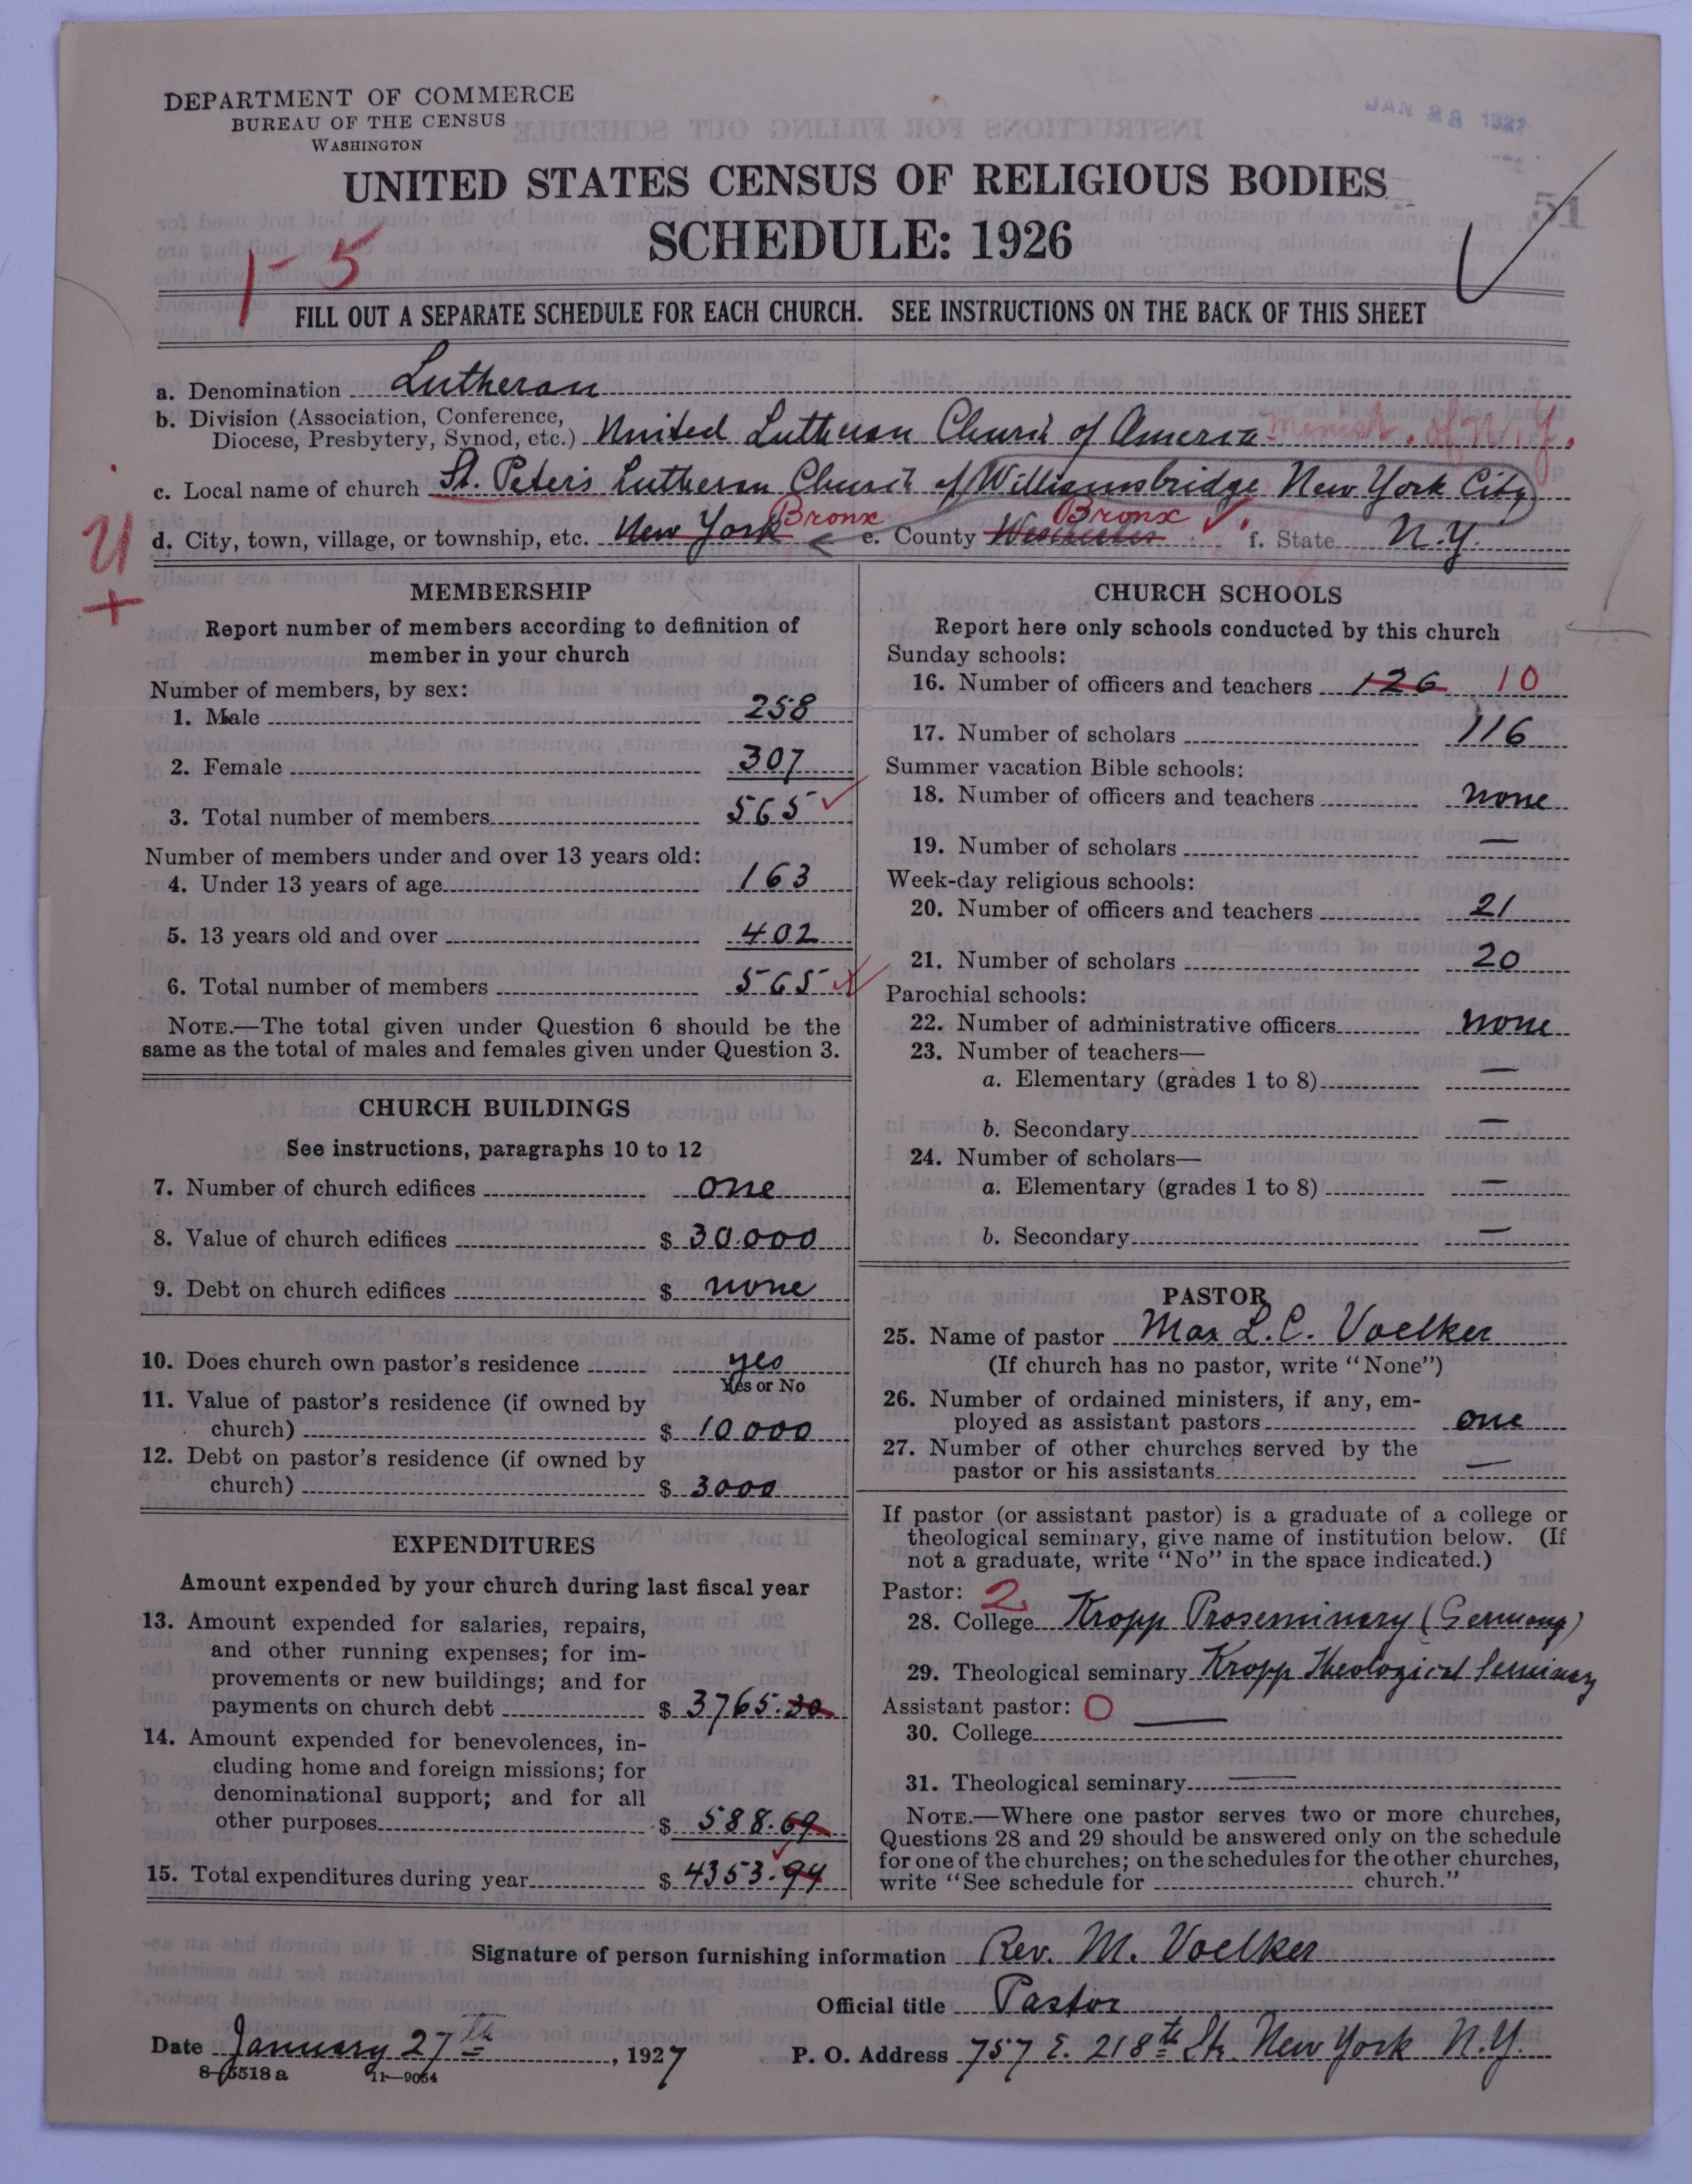 DEPARTMENT OF COMMERCE
BUREAU OF THE CENSUS
WASHINGTON
JAN 28 1927
UNITED STATES CENSUS OF RELIGIOUS BODIES
SCHEDULE: 1926
1-5
FILL OUT A SEPARATE SCHEDULE FOR EACH CHURCH. SEE INSTRUCTIONS ON THE BACK OF THIS SHEET
a. Denomination Lutheran
b. Division (Association, Conference,
Diocese, Presbytery, Synod, etc.) United Lutheran Church of America Minist. of N.Y.
c. Local name of church St. Peter's Lutheran Church of Williamsbridge New York City
d. City, town, village, or township, etc. New York Bronx e. County Westchester Bronx f. State N.Y.
U
+
MEMBERSHIP
Report number of members according to definition of
member in your church
Number of members, by sex:
1. Male 258
2. Female 307
3. Total number of members 565
Number of members under and over 13 years old:
4. Under 13 years of age 163
5. 13 years old and over 402
6. Total number of members 565
NOTE.—The total given under Question 6 should be the
same as the total of males and females given under Question 3.
CHURCH BUILDINGS
See instructions, paragraphs 10 to 12
7. Number of church edifices one
8. Value of church edifices $ 30.000
9. Debt on church edifices $ none
10. Does church own pastor's residence yes
Yes or No
11. Value of pastor's residence (if owned by
church) $ 10 000
12. Debt on pastor's residence (if owned by
church) $ 3000
EXPENDITURES
Amount expended by your church during last fiscal year
13. Amount expended for salaries, repairs,
and other running expenses; for im-
provements or new buildings; and for
payments on church debt $ 3765.30
14. Amount expended for benevolences, in-
cluding home and foreign missions; for
denominational support; and for all
other purposes $ 588.69
15. Total expenditures during year $ 4353.94
CHURCH SCHOOLS
Report here only schools conducted by this church
Sunday schools:
16. Number of officers and teachers 126 10
17. Number of scholars 116
Summer vacation Bible schools:
18. Number of officers and teachers none
19. Number of scholars —
Week-day religious schools:
20. Number of officers and teachers 21
21. Number of scholars 20
Parochial schools:
22. Number of administrative officers none
23. Number of teachers—
a. Elementary (grades 1 to 8) —
b. Secondary —
24. Number of scholars—
a. Elementary (grades 1 to 8) —
b. Secondary —
PASTOR
25. Name of pastor Max L.C. Voelker
(If church has no pastor, write "None")
26. Number of ordained ministers, if any, em-
ployed as assistant pastors one
27. Number of other churches served by the
pastor or his assistants —
If pastor (or assistant pastor) is a graduate of a college or
theological seminary, give name of institution below. (If
not a graduate, write "No" in the space indicated.)
Pastor: 2
28. College Kropp Proseminary (Germany)
29. Theological seminary Kropp Theological Seminary
Assistant pastor: O
30. College —
31. Theological seminary —
NOTE.—Where one pastor serves two or more churches,
Questions 28 and 29 should be answered only on the schedule
for one of the churches; on the schedules for the other churches,
write "See schedule for church."
Signature of person furnishing information Rev. M. Voelker
Official title Pastor
Date January 27th, 1927 P. O. Address 757 E. 218th St. New York N.Y.
8-5518a 11—9054